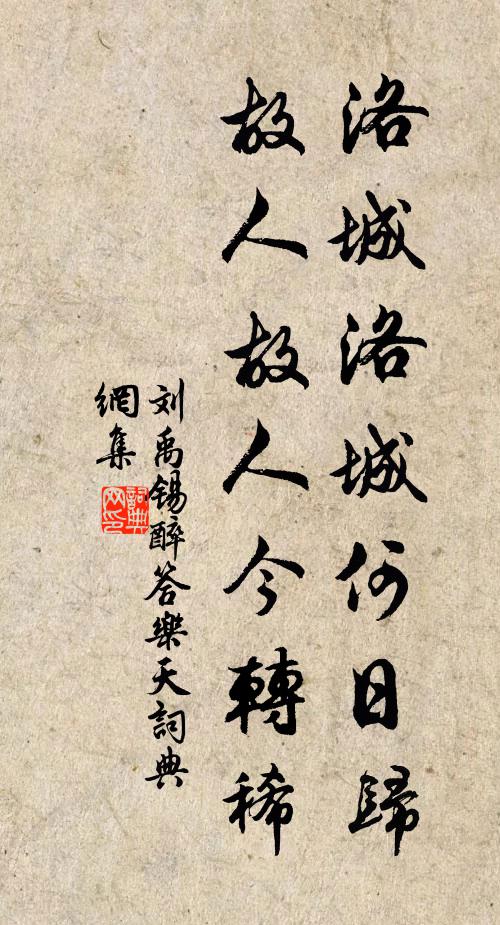 洛城洛城何日歸
故人故人今轉稀
刘禹锡醉答樂天詞典
網集
詞典
网印